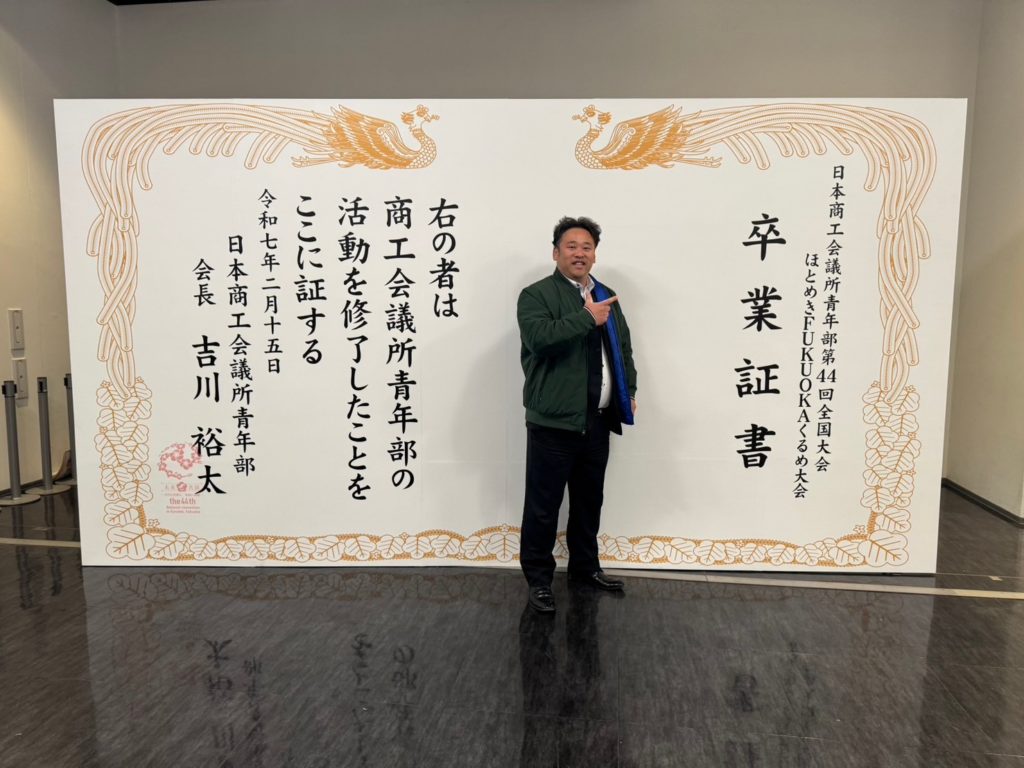 日本商工会議所青年部第44回全国大会
ほとめきFUKUOKAくるめ大会
卒業証書
右の者は
商工会議所青年部の
活動を修了したことを
ここに証する
令和七年二月十五日
日本商工会議所青年部
会長 吉川 裕太
the 44th
National Convention
in Kurume, Fukuoka